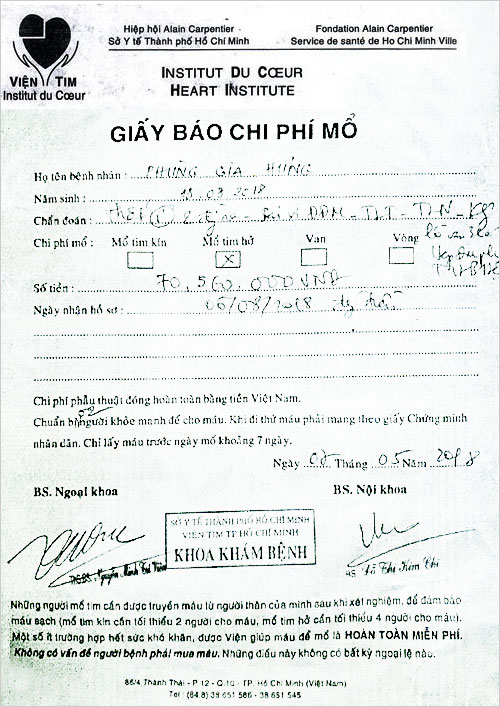 Hiệp hội Alain Carpentier
Fondation Alain Carpentier
Sở Y tế Thành phố Hồ Chí Minh
Service de santé de Ho Chi Minh Ville
VIỆN TIM
Institut du Cœur
INSTITUT DU CŒUR
HEART INSTITUTE
GIẤY BÁO CHI PHÍ MỔ
Họ tên bệnh nhân : PHÙNG GIA HƯNG
Năm sinh : 03 2018
Chẩn đoán :
Chi phí mổ : Mổ tim kín Mổ tim hở Van Vòng
X
Số tiền : 70.560.000 VNĐ
Ngày nhận hồ sơ : 06/08/2018
Chi phí phẫu thuật đóng hoàn toàn bằng tiền Việt Nam.
Chuẩn bị 02 người khỏe mạnh để cho máu. Khi đi thử máu phải mang theo giấy Chứng minh
nhân dân. Chỉ lấy máu trước ngày mổ khoảng 7 ngày.
Ngày Tháng 05 Năm 2018
BS. Ngoại khoa
BS. Nội khoa
SỞ Y TẾ THÀNH PHỐ HỒ CHÍ MINH
VIỆN TIM TP HỒ CHÍ MINH
KHOA KHÁM BỆNH
Những người mổ tim cần được truyền máu từ người thân của mình sau khi xét nghiệm, để đảm bảo
máu sạch (mổ tim kín cần tối thiểu 2 người cho máu, mổ tim hở cần tối thiểu 4 người cho máu).
Một số ít trường hợp hết sức khó khăn, được Viện giúp máu để mổ là HOÀN TOÀN MIỄN PHÍ.
Không có vấn đề người bệnh phải mua máu. Những điều này không có bất kỳ ngoại lệ nào.
86/4 Thành Thái - P 12 - Q.10 - TP. Hồ Chí Minh (Việt Nam)
Tel : (84 8) 38 651 586 - 38 651 545